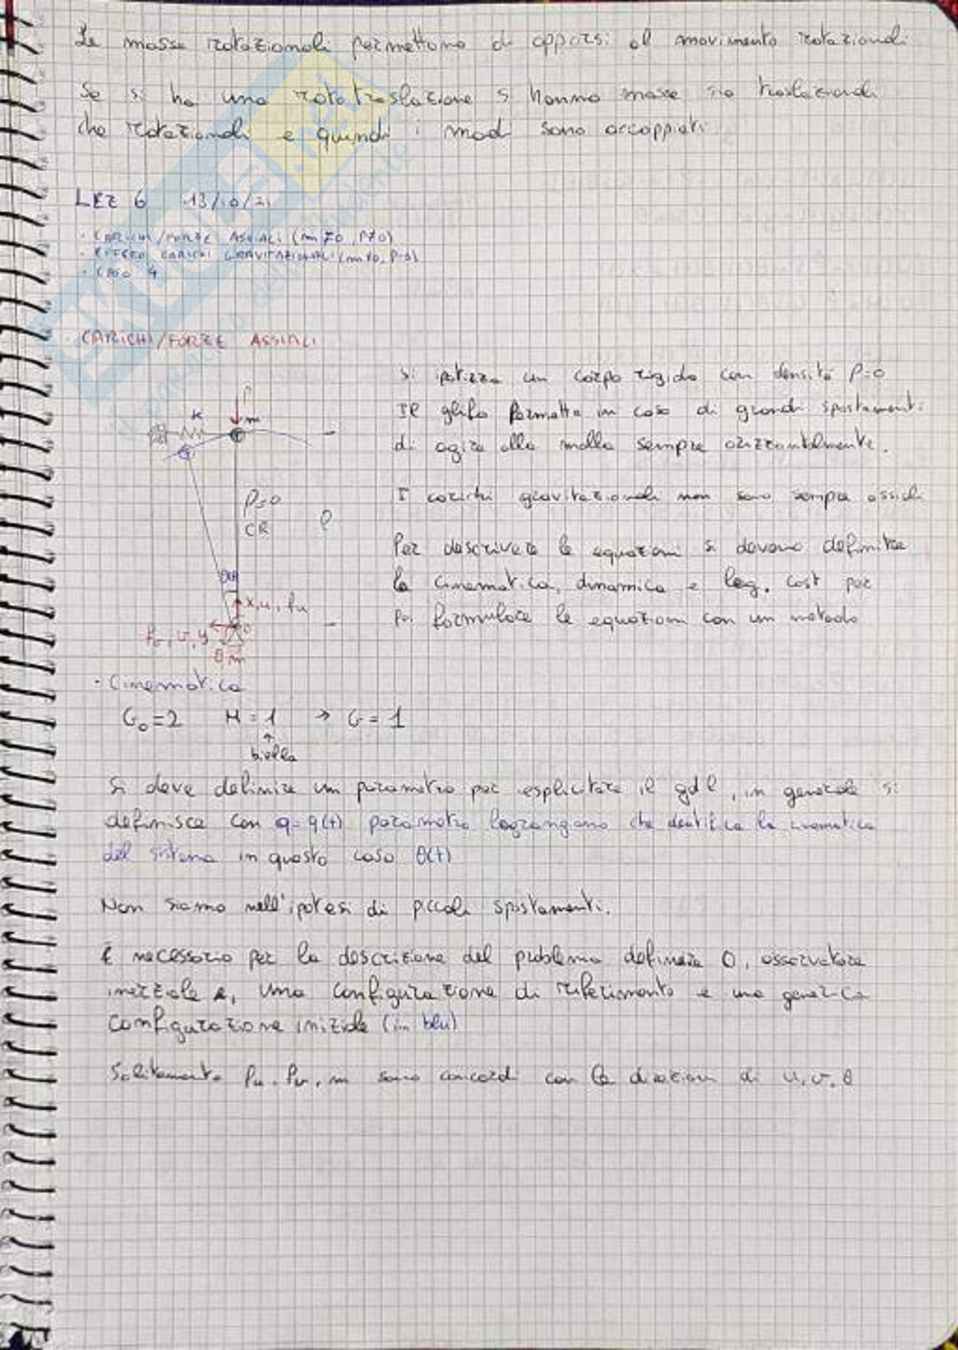 Le masse rotazionali permettono di opporsi al movimento rotazionali
Se si ha una rototraslazione si hanno masse sia traslazionali
che rotazionali e quindi i modi sono accoppiati.
LEZ 6 13/10/21
· CARICHI/FORZE ASSIALI (m≠0, P≠0)
· EFFETTO CARICHI GRAVITAZIONALI (m≠0, P=0)
· CASO 4
CARICHI/FORZE ASSIALI
Si ipotizza un corpo rigido con densità ρ=0
Il glifo permette in caso di grandi spostamenti
di agire alla molla sempre orizzontalmente.
I carichi gravitazionali non sono sempre assiali
Per descrivere le equazioni si devono definire
la cinematica, dinamica e leg. cost per
poi formulare le equazioni con un metodo
P
K
m
ρ=0
CR
l
θ(t)
x, u, fu
O
fv, v, y
θ m
· Cinematica
G₀=2 M=1 → G=1
↑
biella
Si deve definire un parametro per esplicitare il gdl, in generale si
definisce con q=q(t) parametro lagrangiano che identifica la cinematica
del sistema in questo caso θ(t)
Non siamo nell'ipotesi di piccoli spostamenti.
È necessario per la descrizione del problema definire O, osservatore
inerziale e, una configurazione di riferimento e una generica
configurazione iniziale (in blu)
Solitamente fu, fv, m sono concordi con la direzioni di u, v, θ